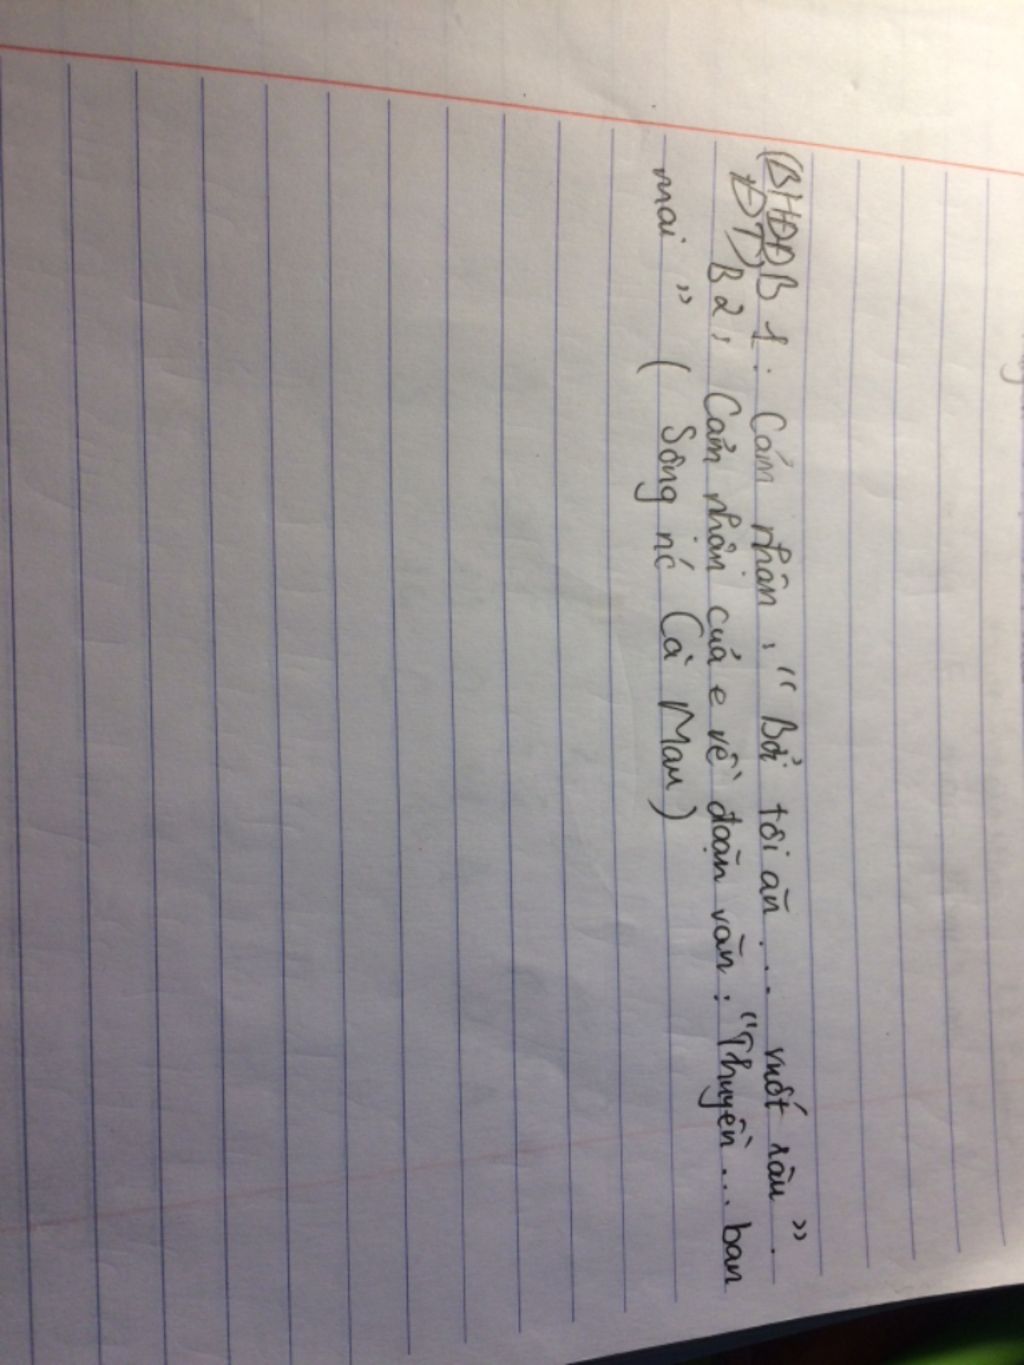 (BHĐĐB 1 : Cảm nhận : "Bởi tôi ăn ... vuốt râu".
ĐT) B2 : Cảm nhận của e về đoạn văn : "Thuyền ... ban
mai" ( Sông nc Cà Mau)